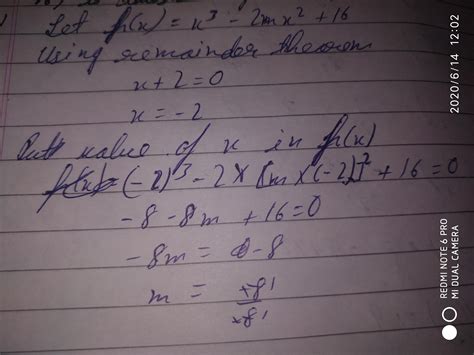 Let p(x) = x³ - 2mx² + 16
Using remainder theorem
x + 2 = 0
x = -2
Put value of x in p(x)
p(x) = (-2)³ - 2 × (m × (-2)² + 16 = 0
-8 - 8m + 16 = 0
-8m = -8
m = +8 1
+8 1
2020/6/14 12:02
REDMI NOTE 6 PRO
MI DUAL CAMERA